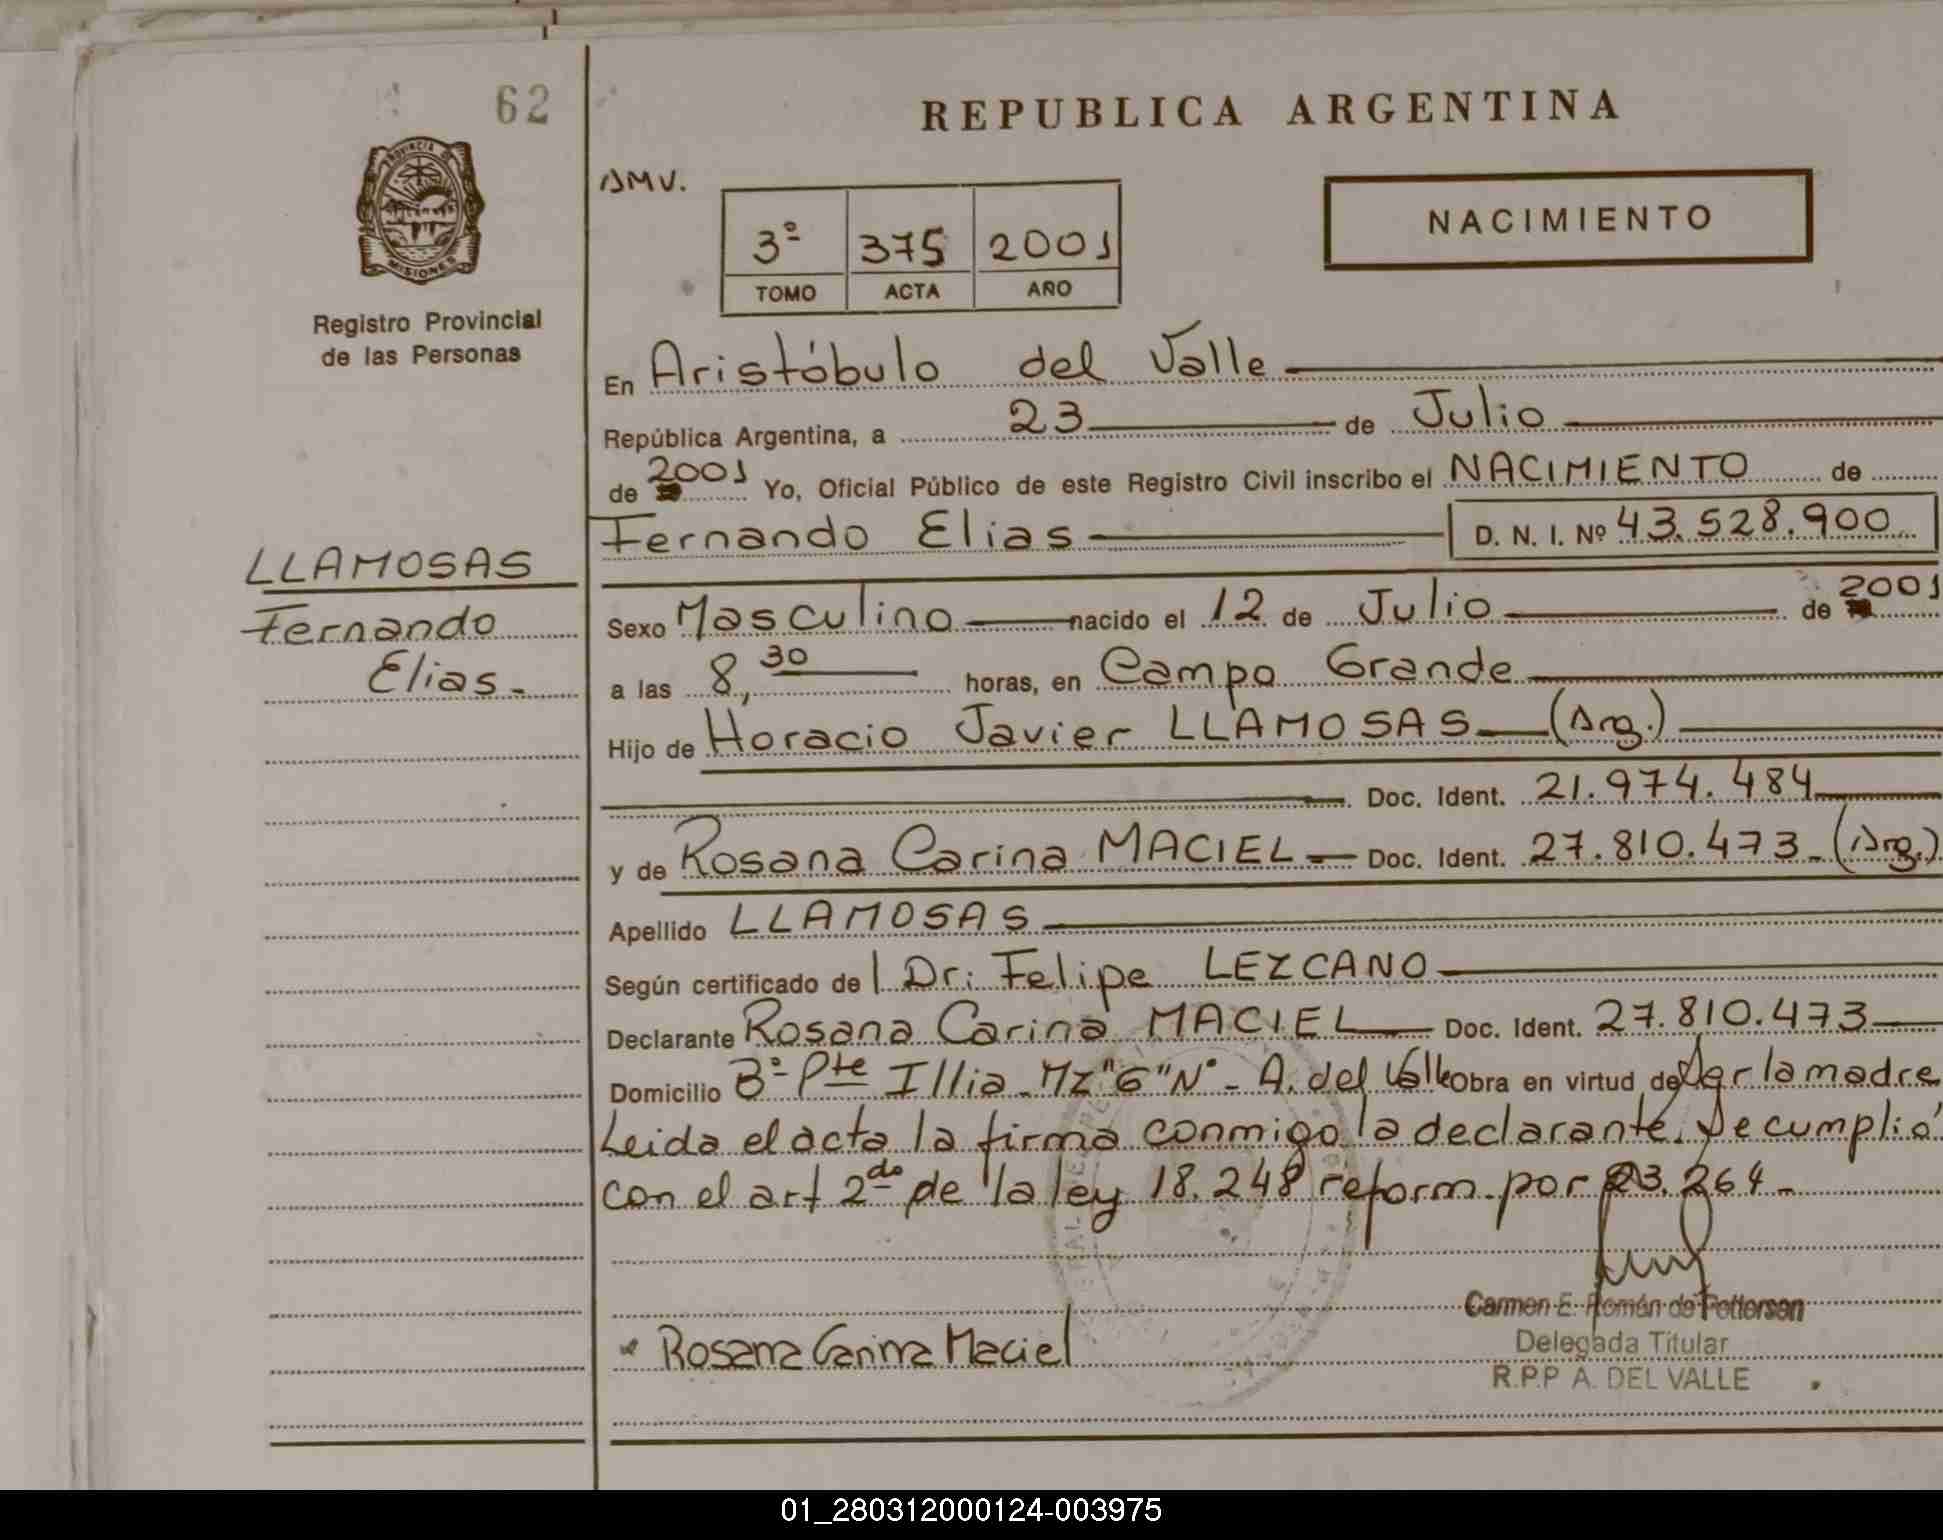 62
REPUBLICA ARGENTINA
PROVINCIA DE
MISIONES
Registro Provincial
de las Personas
AMV.
3º 375 2001
TOMO ACTA AÑO
NACIMIENTO
En Aristóbulo del Valle
República Argentina, a 23 de Julio
de 2001 Yo, Oficial Público de este Registro Civil inscribo el NACIMIENTO de
Fernando Elias D. N. I. Nº 43.528.900
LLAMOSAS
Fernando
Elias.-
Sexo Masculino nacido el 12 de Julio de 2001
a las 8,30 horas, en Campo Grande
Hijo de Horacio Javier LLAMOSAS (Arg.)
Doc. Ident. 21.974.484
y de Rosana Carina MACIEL Doc. Ident. 27.810.473 - (Arg.)
Apellido LLAMOSAS
Según certificado de l Dr: Felipe LEZCANO
Declarante Rosana Carina MACIEL Doc. Ident. 27.810.473
Domicilio Bº Pte Illia - Mz "G" Nº - A. del Valle Obra en virtud de Ser la madre
Leida el acta la firma conmigo la declarante. Se cumplió
con el art 2do de la ley 18.248 reform. por 23.264 -
Carmen E. Román de Pettersen
Delegada Titular
R.P.P A. DEL VALLE
Rosana Carina Maciel
01_280312000124-003975